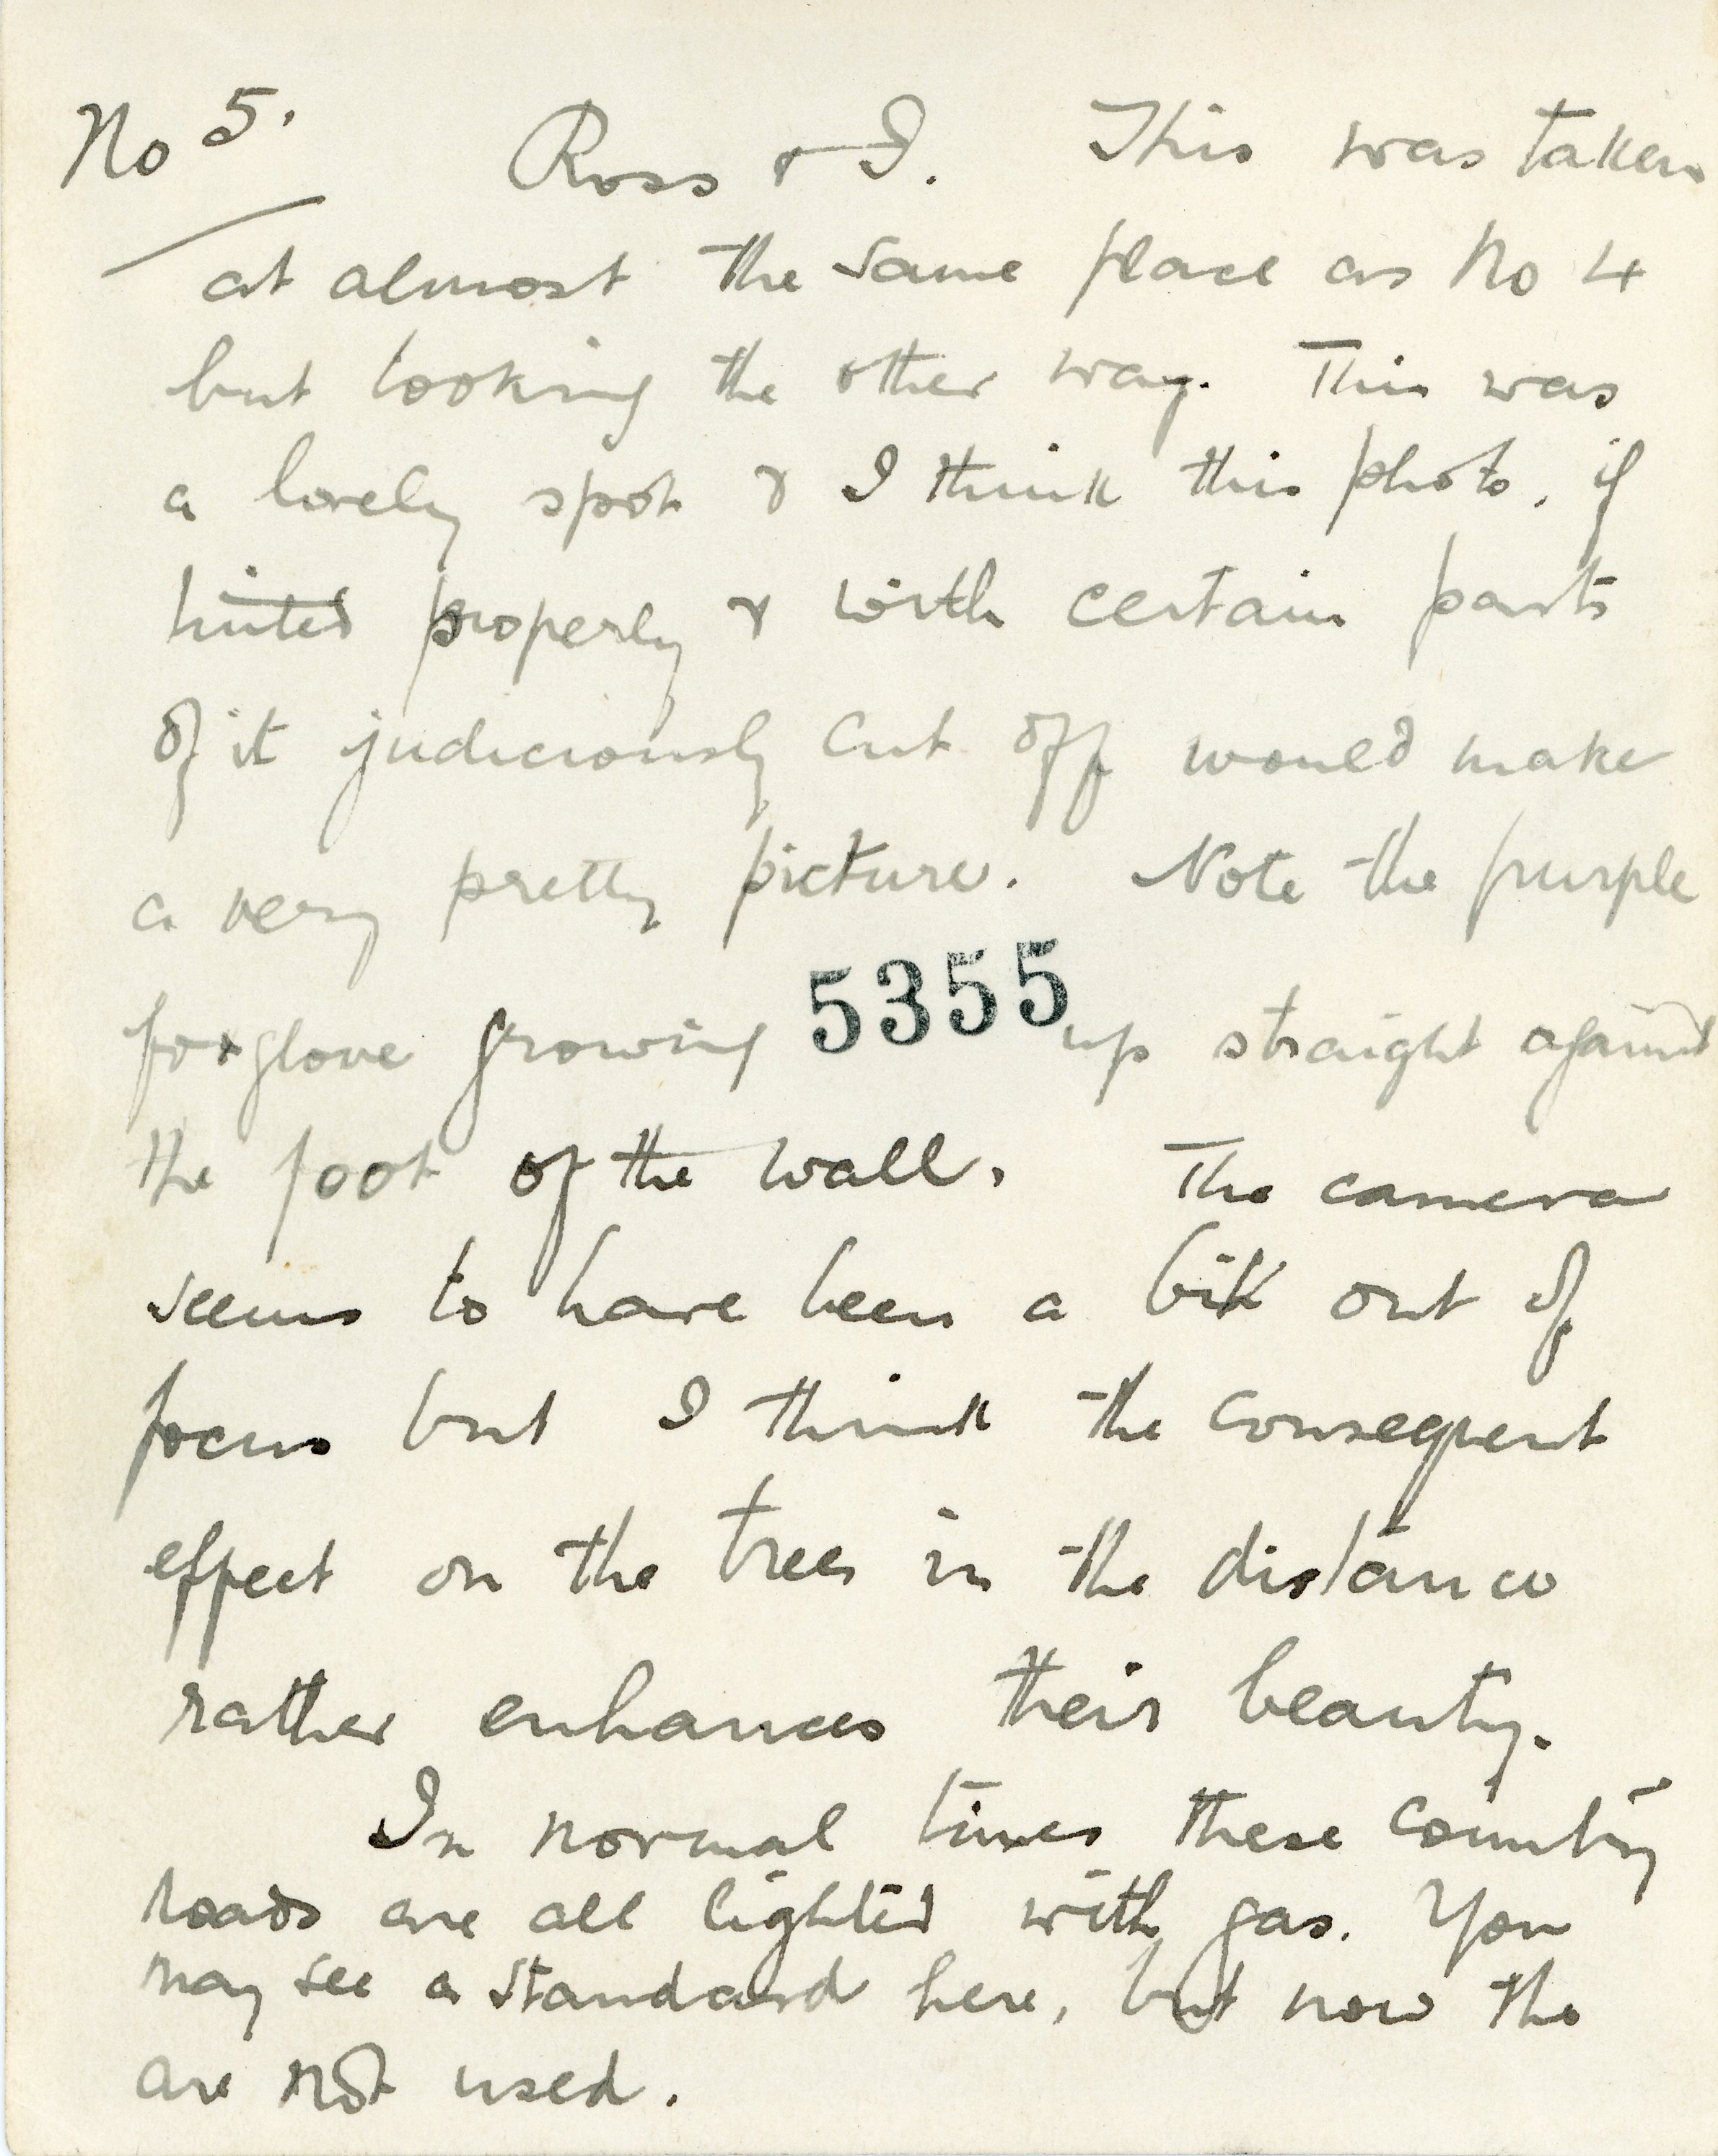 No 5. Ross & I. This was taken
at almost the same place as No 4
but looking the other way. This was
a lovely spot & I think this photo, if
tinted properly & with certain parts
of it judiciously cut off would make
a very pretty picture. Note the purple
foxglove growing up straight against
5355
the foot of the wall. The camera
seems to have been a bit out of
focus but I think the consequent
effect on the trees in the distance
rather enhances their beauty.
In normal times these country
roads are all lighted with gas. You
may see a standard here, but now the
are not used.